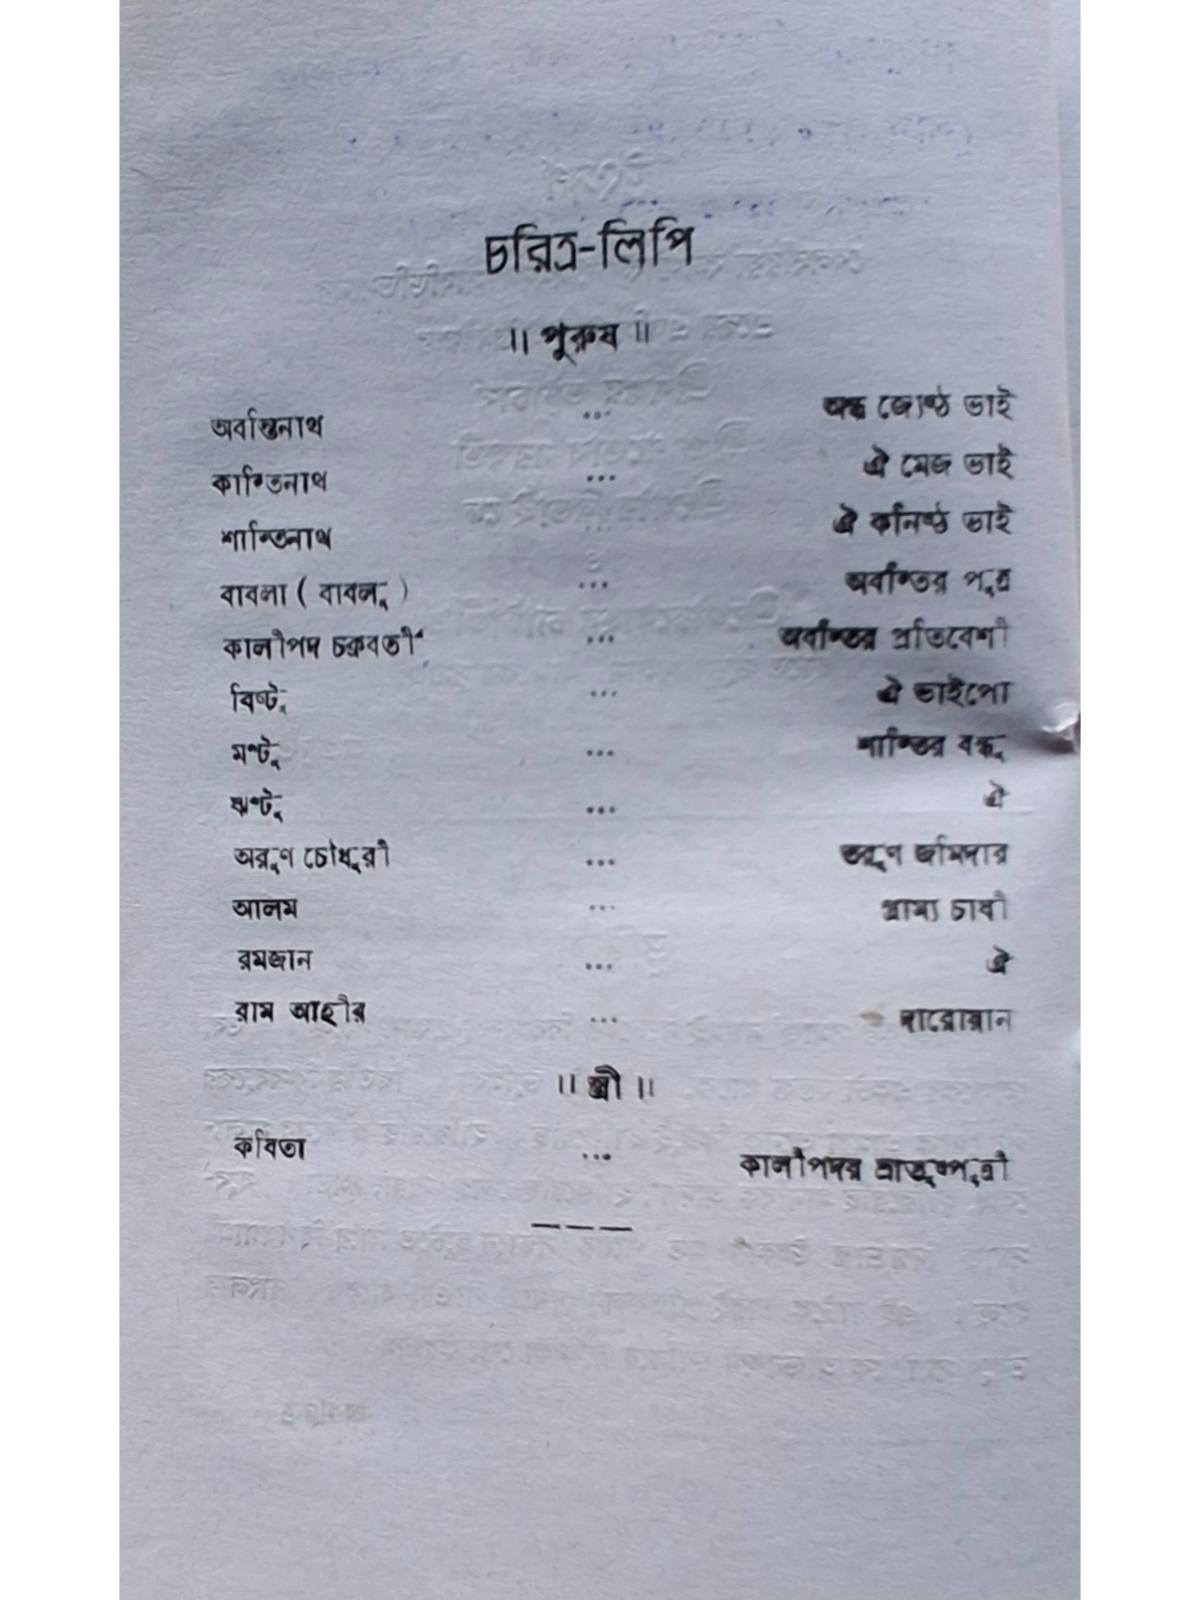 চরিত্র-লিপি
॥ পুরুষ ॥
অবন্তিনাথ ... অন্ধ জ্যেষ্ঠ ভাই
কান্তিনাথ ... ঐ মেজ ভাই
শান্তিনাথ ঐ কনিষ্ঠ ভাই
বাবলা ( বাবলু ) ... অবন্তির পুত্র
কালীপদ চক্রবর্তী ... অবন্তির প্রতিবেশী
বিষ্টু ... ঐ ভাইপো
মণ্টু ... শান্তির বন্ধু
ঝণ্টু ... ঐ
অরুণ চৌধুরী ... তরুণ জমিদার
আলম ... গ্রাম্য চাষী
রমজান ... ঐ
রাম আহীর ... দারোয়ান
॥ স্ত্রী ॥
কবিতা ... কালীপদর ভ্রাতুষ্পুত্রী